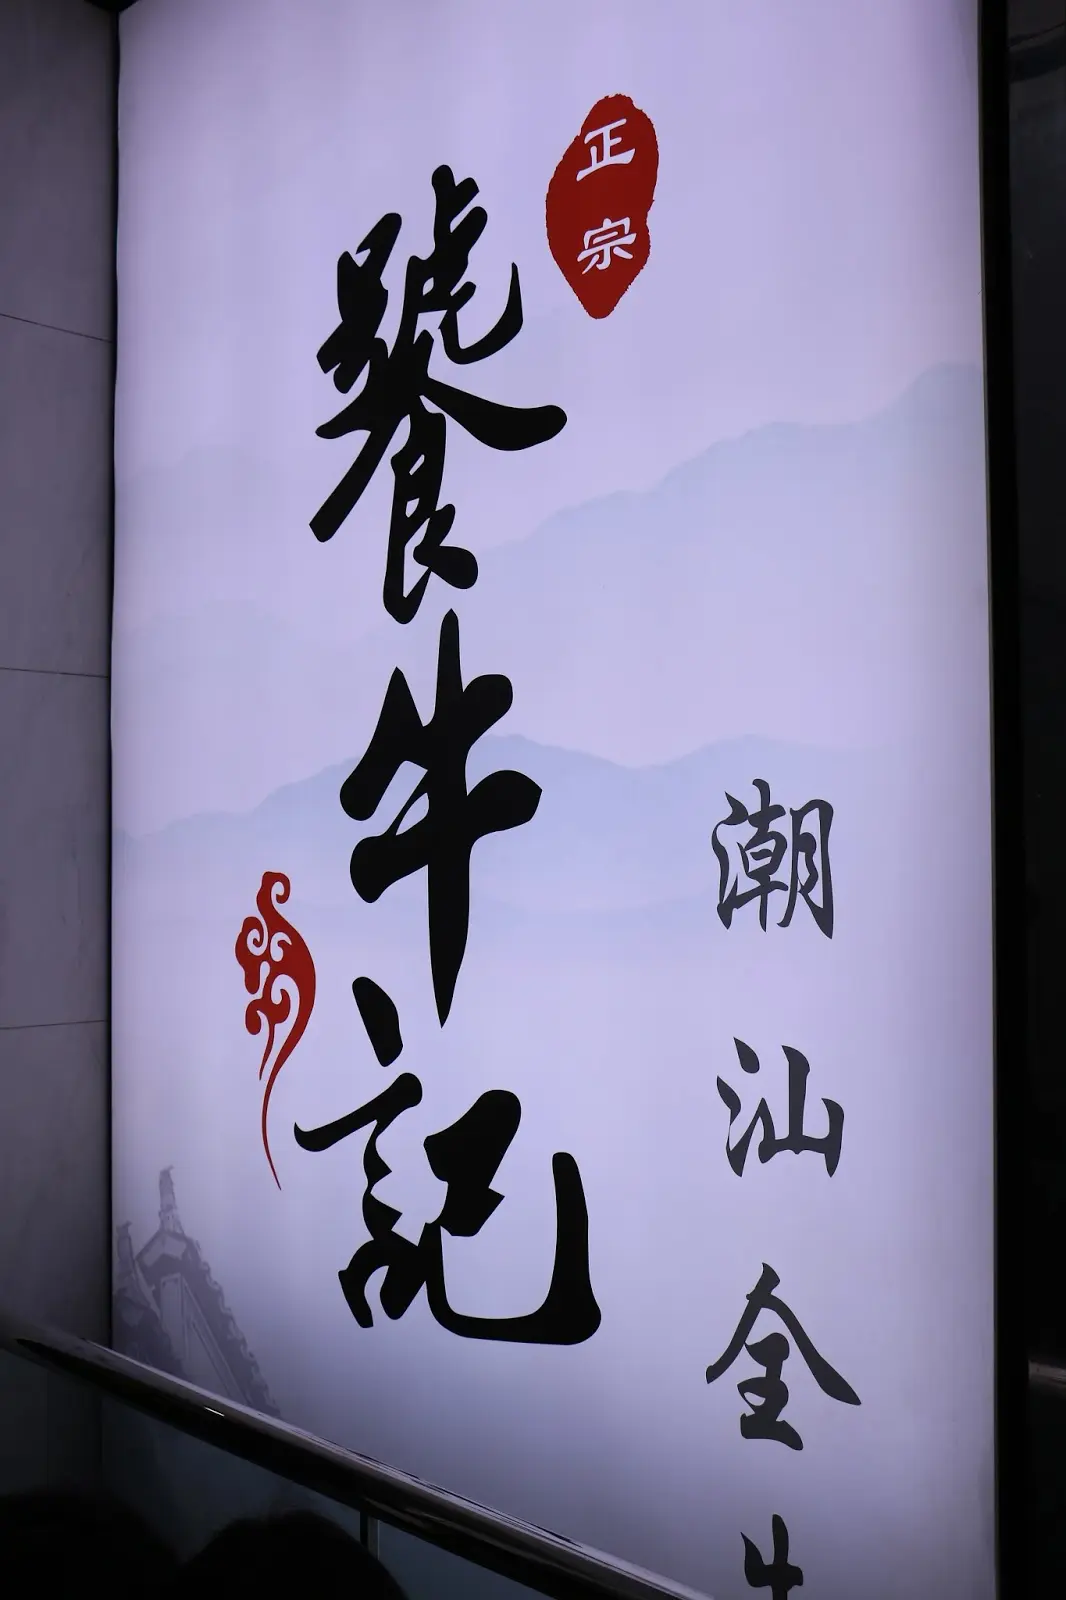 正宗
饕牛記
潮汕全牛